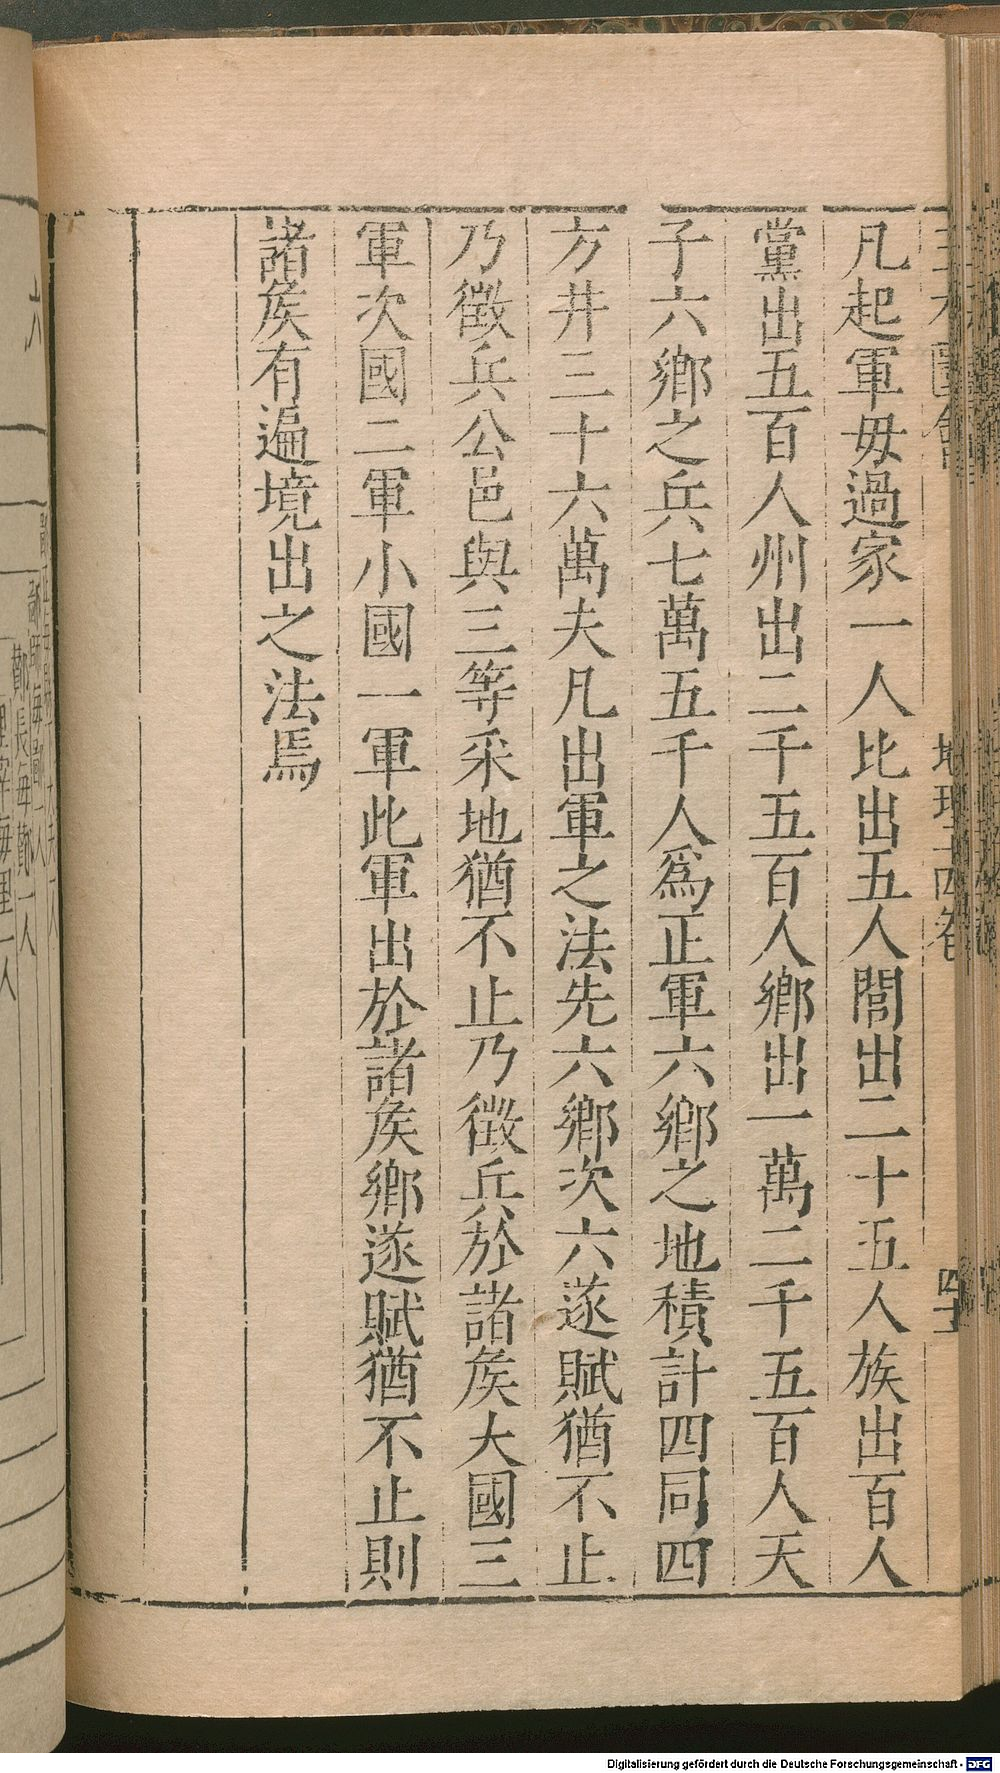 凡起軍毋過家一人比出五人閭出二十五人族出百人
黨出五百人州出二千五百人鄉出一萬二千五百人天
子六鄉之兵七萬五千人爲正軍六鄉之地積計四同四
方井三十六萬夫凡出軍之法先六鄉次六遂賦猶不止
乃徵兵公邑與三等采地猶不止乃徵兵於諸矦大國三
軍次國二軍小國一軍此軍出於諸矦鄉遂賦猶不止則
諸矦有遍境出之法焉
鄙師每鄙一人
酇長每酇一人
里宰每里一人
Digitalisierung gefördert durch die Deutsche Forschungsgemeinschaft - DFG